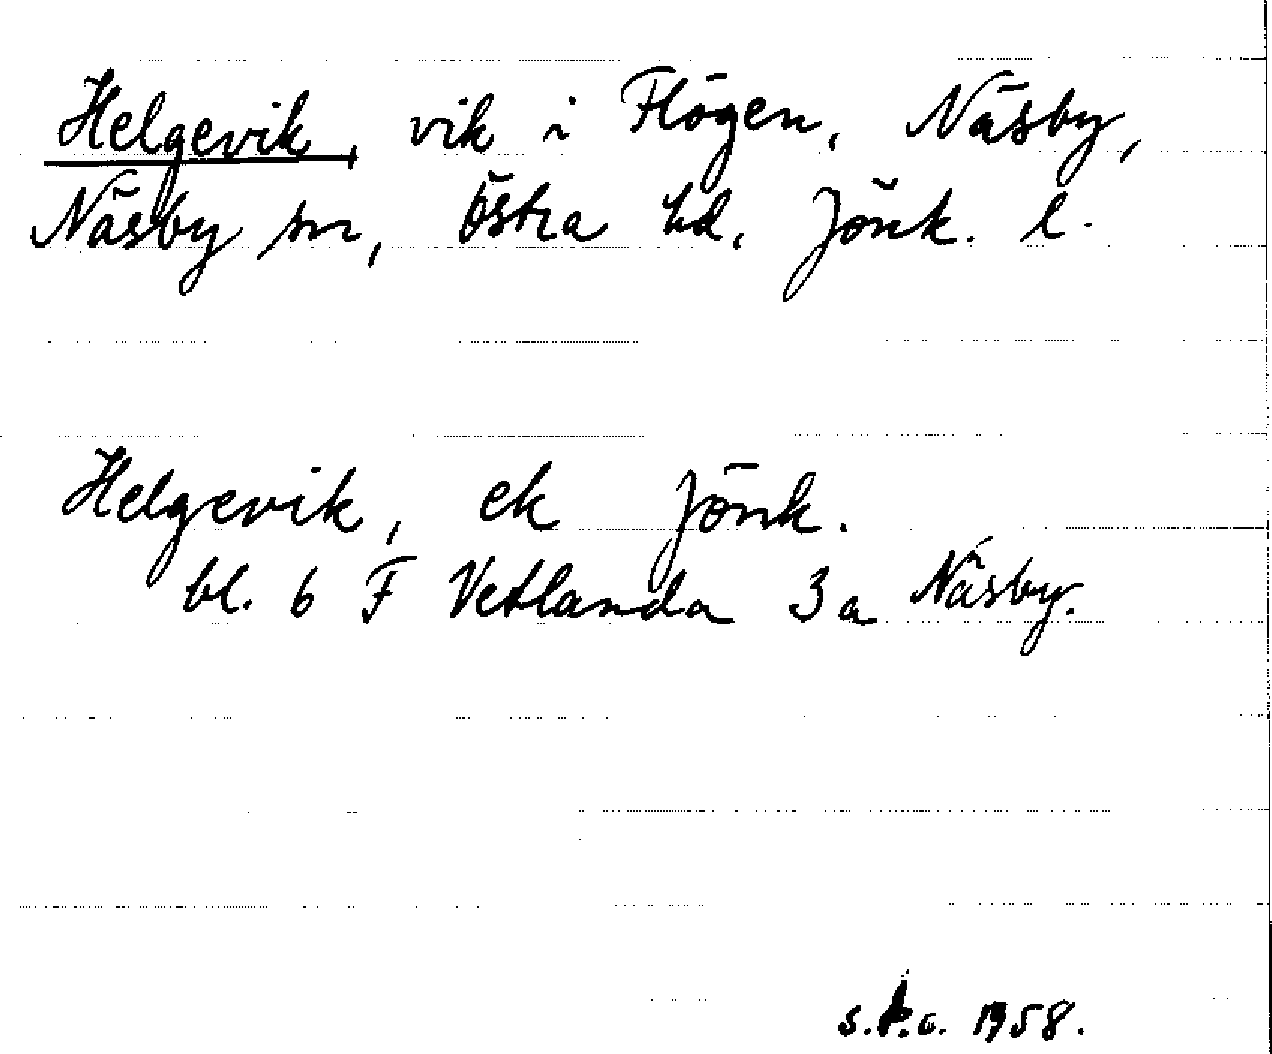 Helgevik, vik i Flögen, Näsby,
Näsby sn, Östra hd, Jönk. l.
Helgevik, ek Jönk.
bl. 6 F Vetlanda 3a Näsby.
1958.